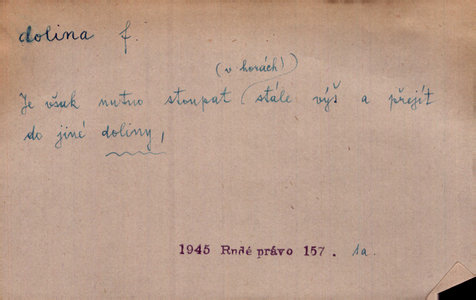 dolina f.
(v horách)
Je však nutno stoupat stále výš a přejít
do jiné doliny,
1945 Rudé právo 157. 1a.